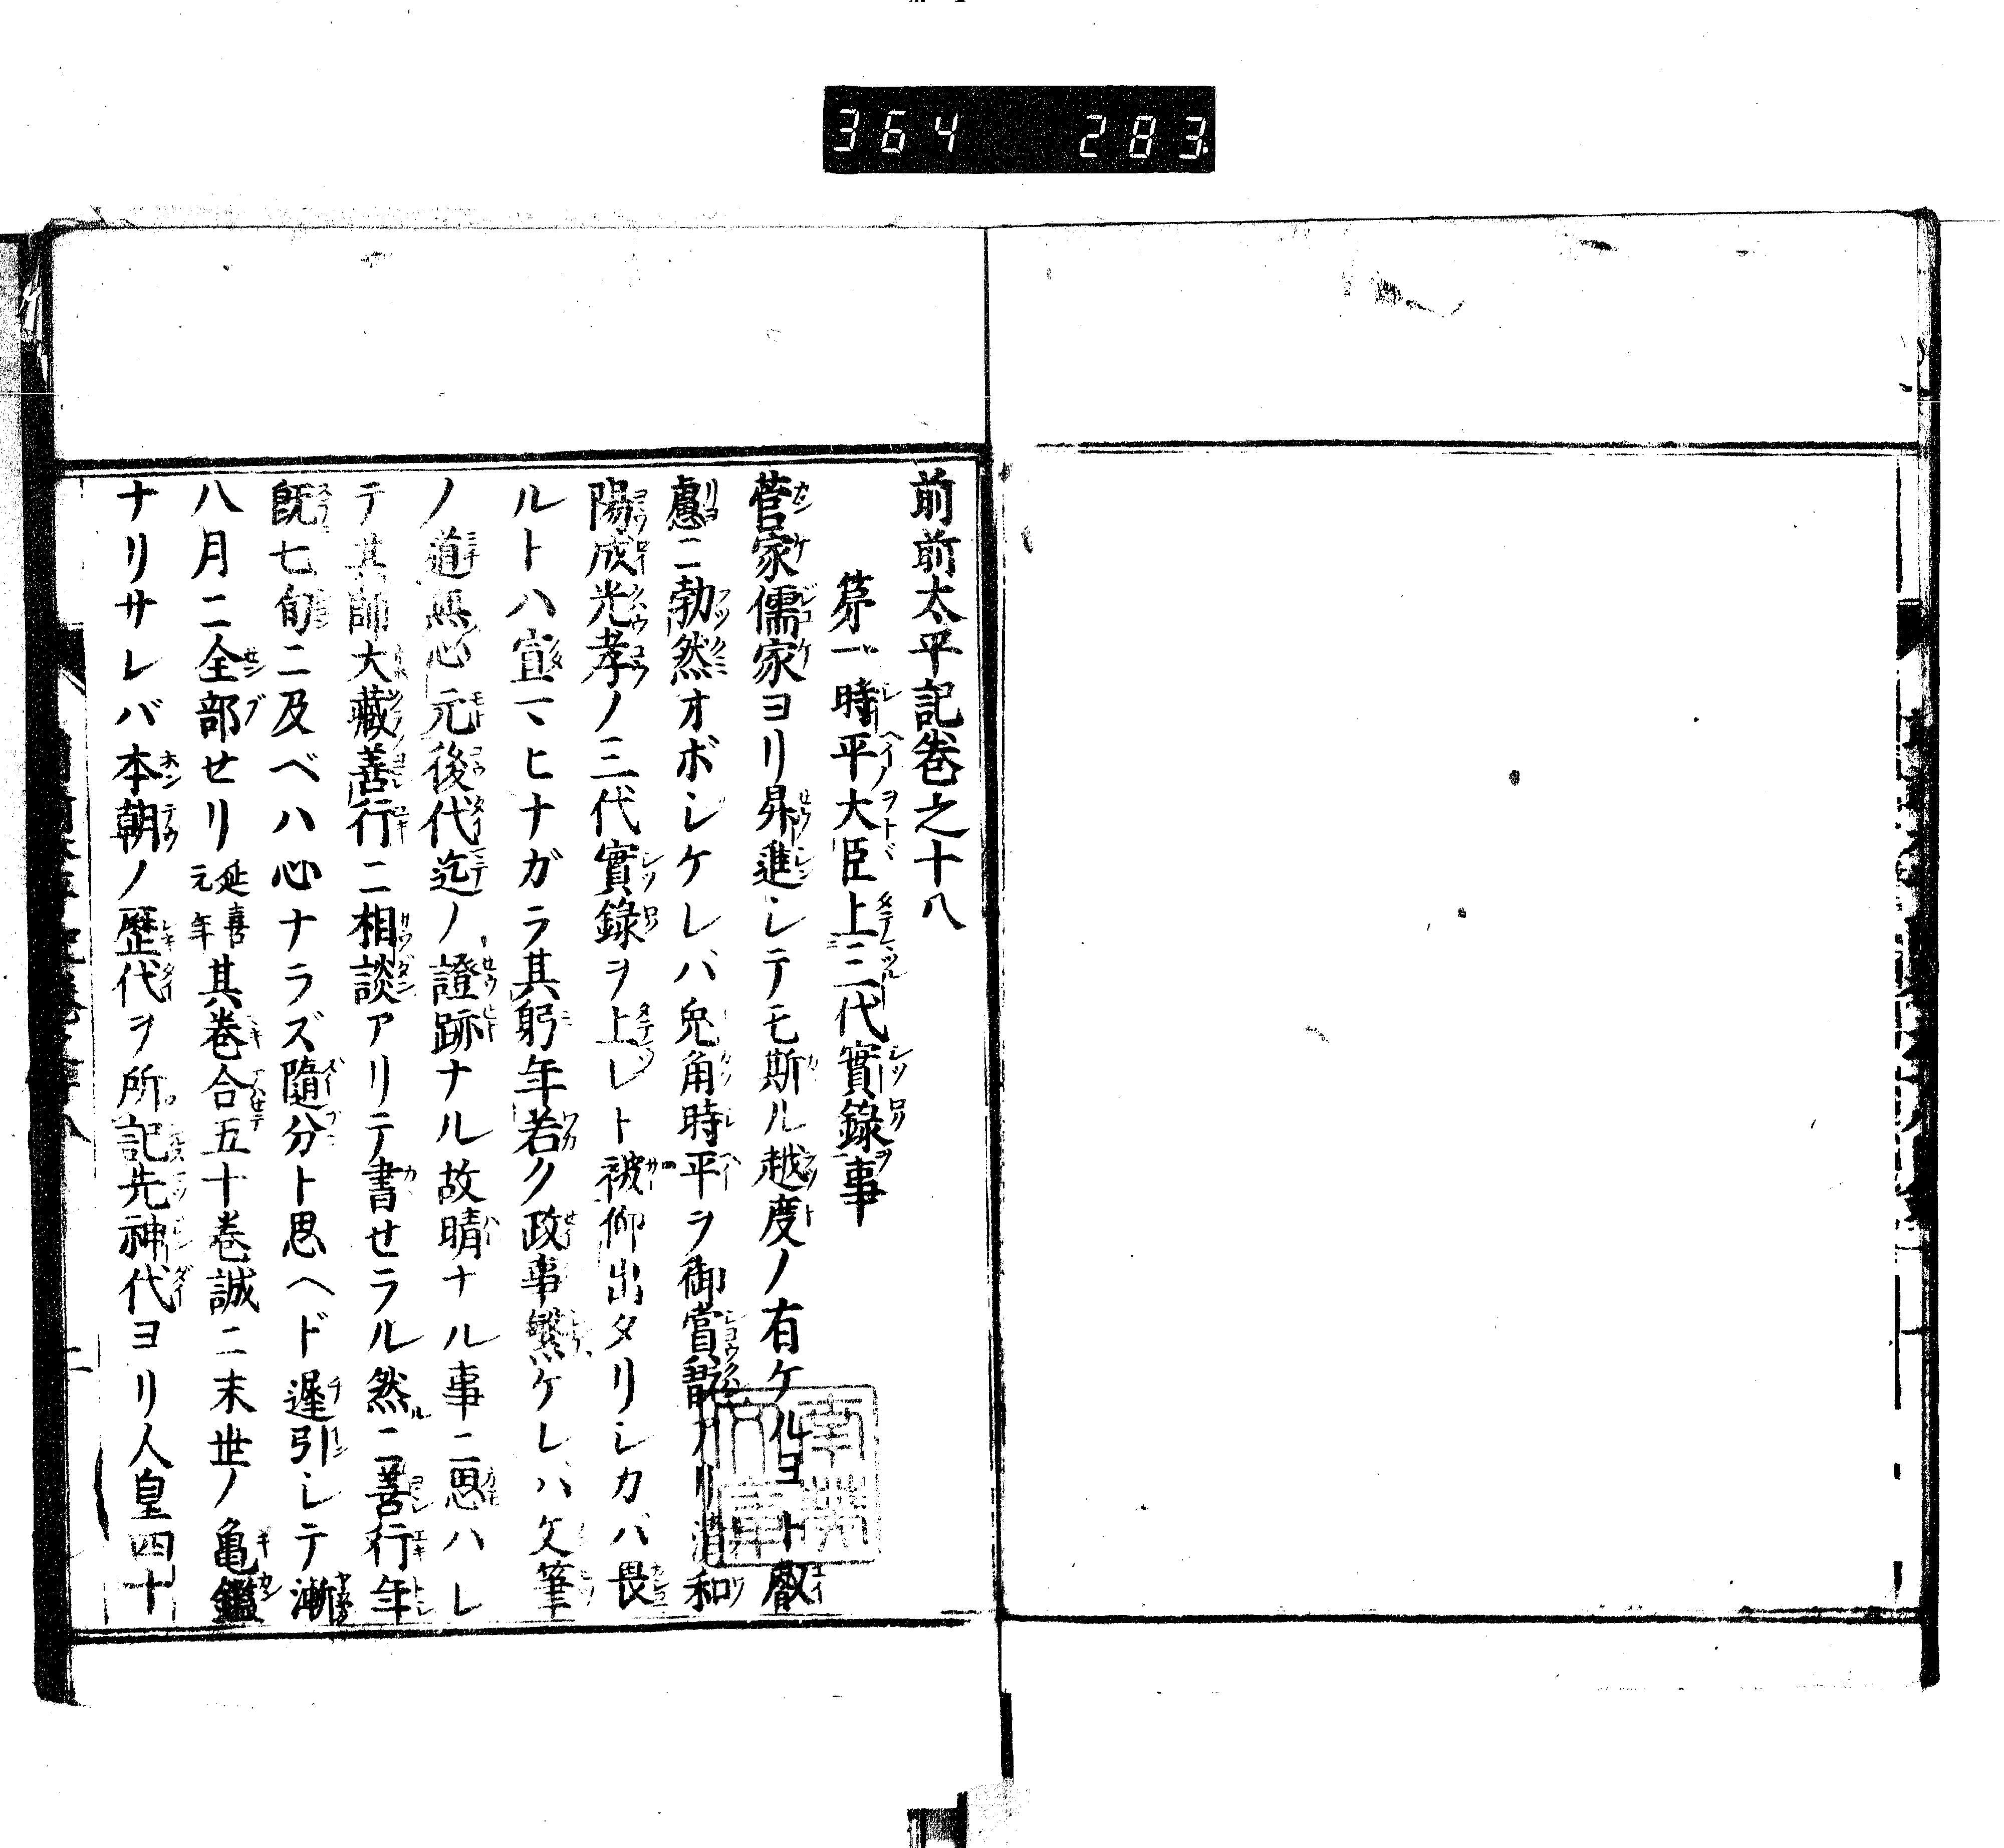 364 283
前前太平記巻之十八
苐一時平大臣上三代實録事
菅家儒家ヨリ昇進シテモ斯ル越度ノ有ケルヨト叡
慮ニ勃然オボシケレバ兎角時平ヲ御賞翫アリ清和
陽成光孝ノ三代實録ヲ上レト被仰出タリシカバ畏
ルトハ宣ヒナガラ其躬年若ク政事繁ケレハ文筆
ノ道無心元後代迄ノ證跡ナル故晴ナル事ニ思ハレ
テ其師大藏善行ニ相談アリテ書セラル然ニ善行年
既七旬ニ及ベハ心ナラズ隨分ト思ヘド遲引シテ漸
八月ニ全部セリ延喜元年其巻合五十巻誠ニ末世ノ亀鑑
ナリサレバ本朝ノ歴代ヲ所記先神代ヨリ人皇四十